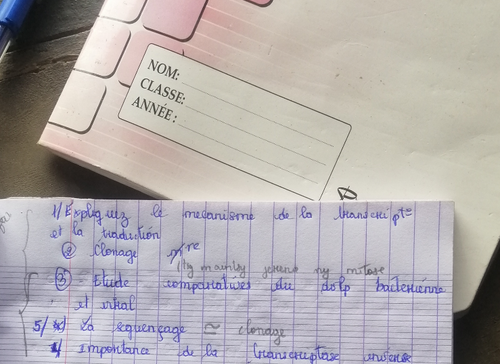 NOM:
CLASSE:
ANNÉE:
1/ Expliquez le mécanisme de la transcripte
et la traduction
② Clonage
③ - Etude comparatives du bactérienne
et viral
5/ La séquençage ≈ clonage
Importance de la transcriptase